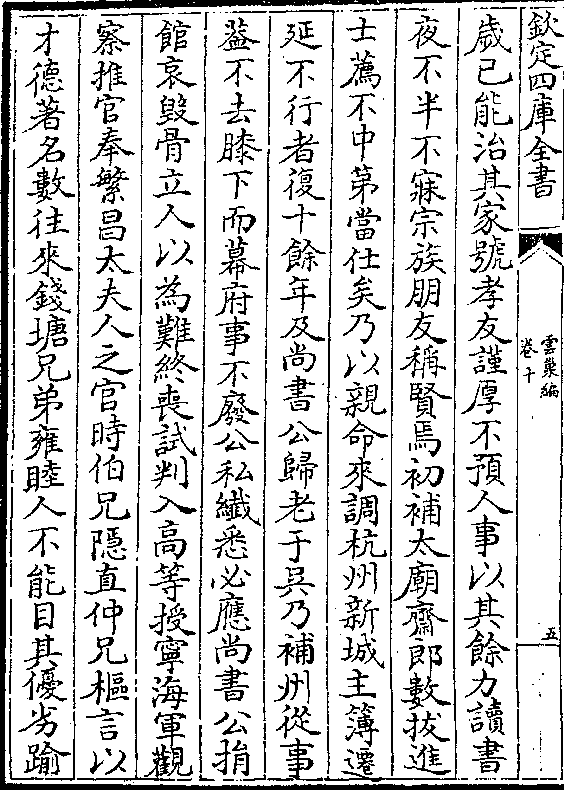 欽定四庫全書
雲巢編
卷十
五
歲已能治其家號孝友謹厚不預人事以其餘力讀書
夜不半不寐宗族朋友稱賢焉初補太廟齋郎數拔進
士薦不中第當仕矣乃以親命來調杭州新城主簿遷
延不行者復十餘年及尚書公歸老于吳乃補州從事
葢不去膝下而幕府事不廢公私纖悉必應尚書公捐
館哀毀骨立人以為難終喪試判入高等授寧海軍觀
察推官奉繁昌太夫人之官時伯兄隱直仲兄樞言以
才德著名數往來錢塘兄弟雍睦人不能目其優劣踰